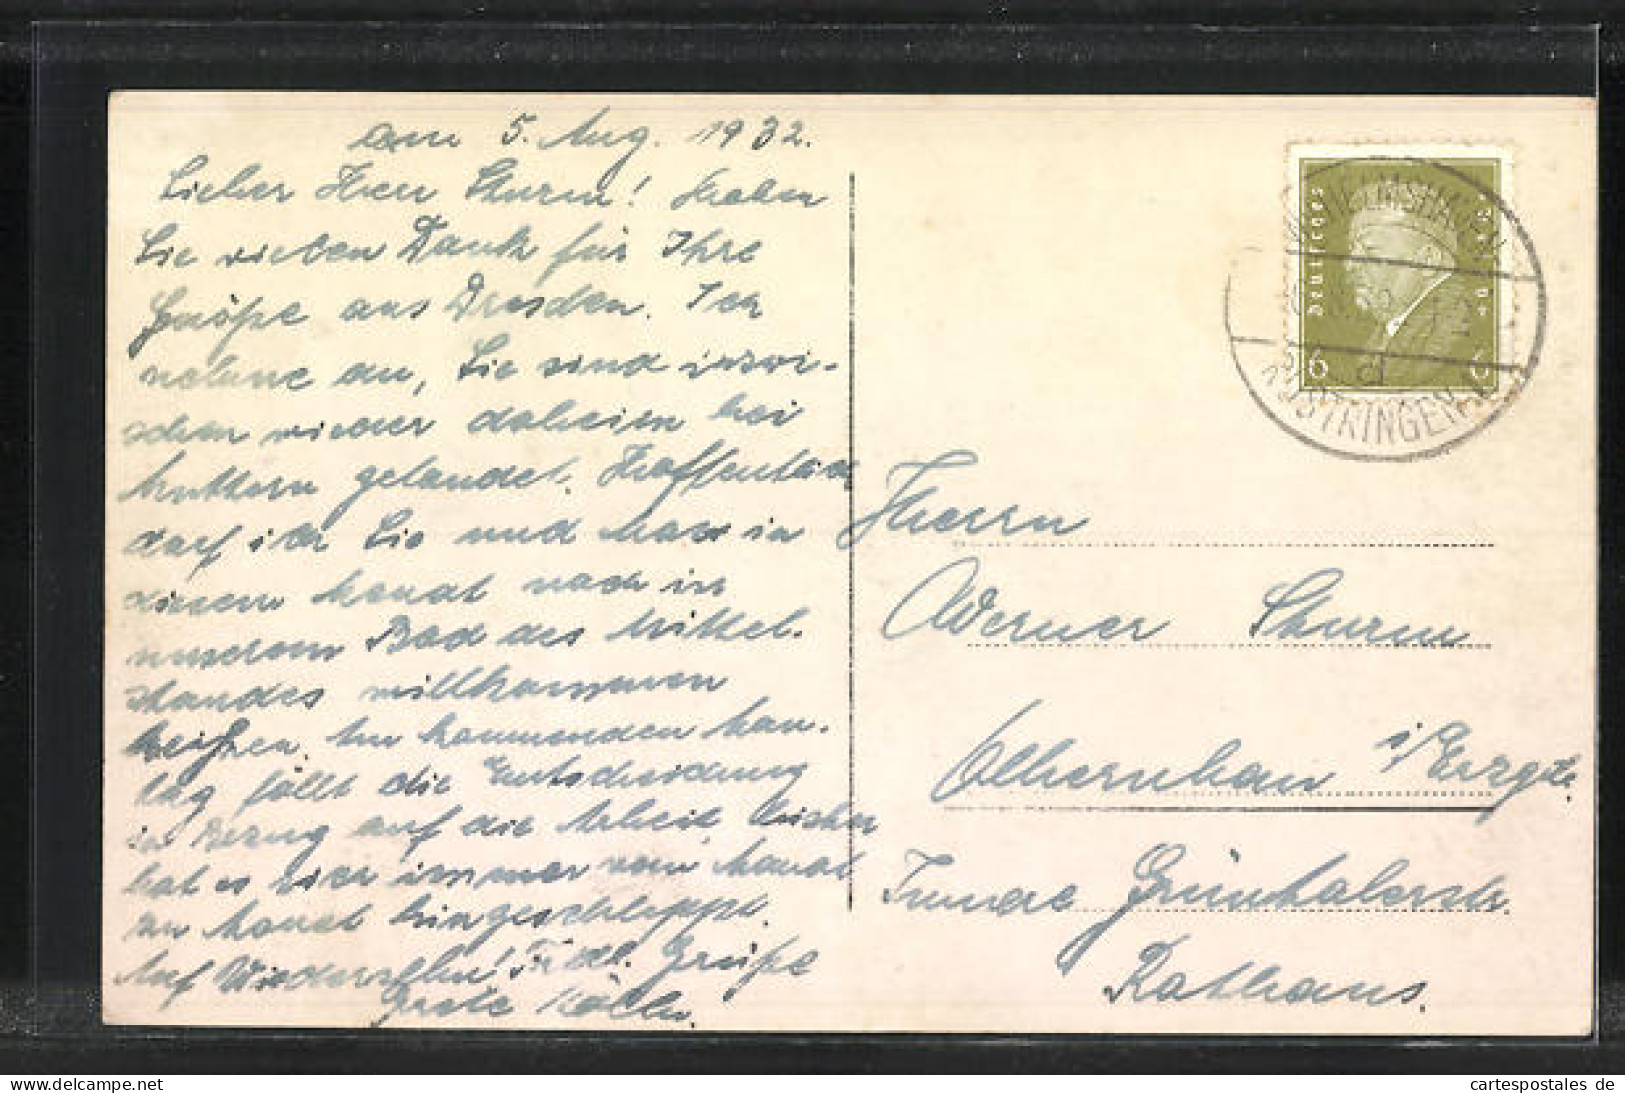 am 5. Aug. 1932.
Lieber Herr Sturm! Haben
Sie vielen Dank für Ihre
Grüße aus Dresden. Ich
nehme an, Sie sind inzwi-
schen wieder daheim bei
Muttern gelandet. Hoffentlich
darf ich Sie und Max in
diesem Monat noch in
unserem Bad des Mittel-
standes willkommen
heißen. Am kommenden Mon-
tag fällt die Entscheidung
in Bezug auf die Arbeit, bisher
hat es hier immer vom Monat
zu Monat hingeschleppt.
Auf Wiedersehn! Frdl. Grüße
Grete Kölln.
Deutsches Reich
6 6
WILHELMSHAVEN
d
RÜSTRINGEN
Herrn
Werner Sturm
Olbernhau i/Erzgb.
Innere Grünthalerstr.
Rathaus.
your item's title
cartespostales de